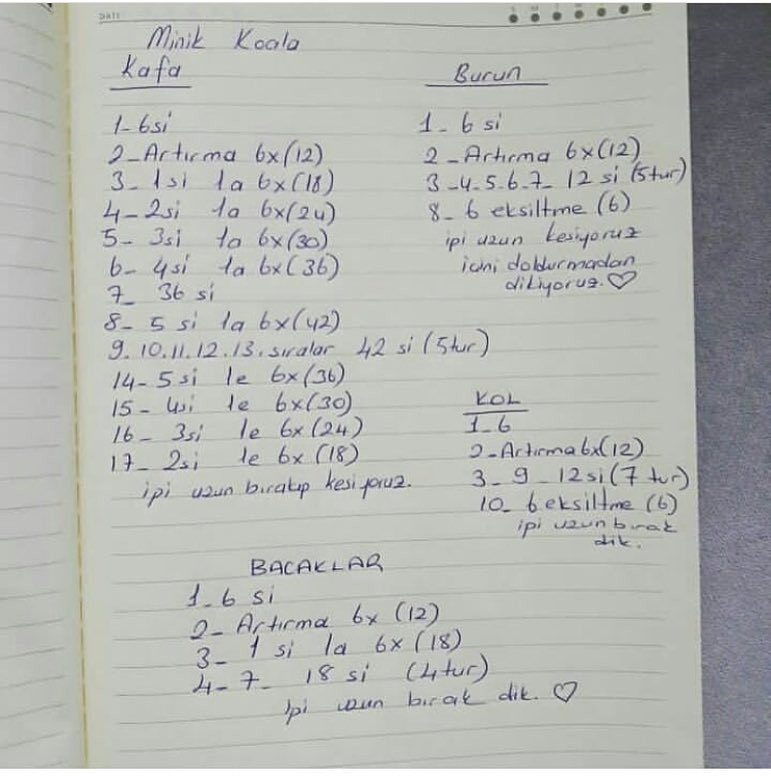 Minik Koala
Kafa
1- 6si
2- Artırma 6x(12)
3- 1si 1a 6x(18)
4- 2si 1a 6x(24)
5- 3si 1a 6x(30)
6- 4si 1a 6x(36)
7- 36 si
8- 5 si 1a 6x(42)
9.10.11.12.13.sıralar 42 si (5tur)
14- 5si 1e 6x(36)
15- 4si 1e 6x(30)
16- 3si 1e 6x(24)
17- 2si 1e 6x(18)
ipi uzun bırakıp kesiyoruz.
Burun
1- 6 si
2- Artırma 6x(12)
3-4-5-6-7- 12 si (5tur)
8- 6 eksiltme (6)
ipi uzun kesiyoruz
içini doldurmadan
dikiyoruz.♡
KOL
1-6
2-Artırma6x(12)
3-9- 12si(7 tur)
10- 6 eksiltme (6)
ipi uzun bırak
dik.
BACAKLAR
1-6 si
2- Artırma 6x (12)
3- 1 si 1a 6x (18)
4-7- 18 si (4tur)
ipi uzun bırak dik. ♡